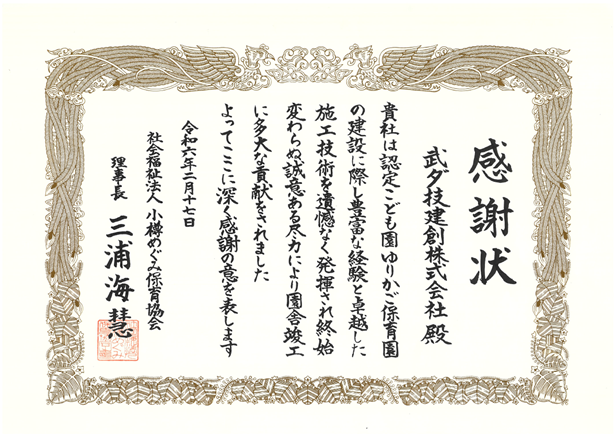 感謝状
武ダ技建創株式会社 殿
貴社は認定こども園ゆりかご保育園
の建設に際し豊富な経験と卓越した
施工技術を遺憾なく発揮され終始
変わらぬ誠意ある尽力により園舎竣工
に多大な貢献をされました
よってここに深く感謝の意を表します
令和六年二月十七日
社会福祉法人 小樽めぐみ保育協会
理事長 三浦海慧